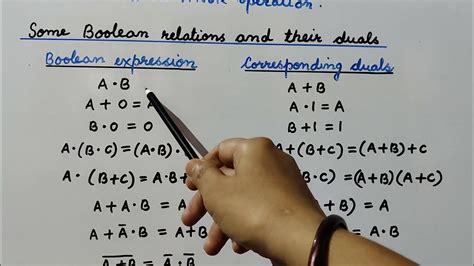 operation.
Some Boolean relations and their duals
Boolean expression Corresponding duals
A·B A + B
A + 0 = A·1 = A
B·0 = 0 B+1 = 1
A·(B·C) = (A·B)· +(B+C) = (A+B)+C
A·(B+C) = A·B ·C) = (A+B)(A+C)
A + A·B = A ) = A
A + A̅·B = A+B ) = A·B
A̅+̅B̅ = A̅·B̅ = A̅+B̅